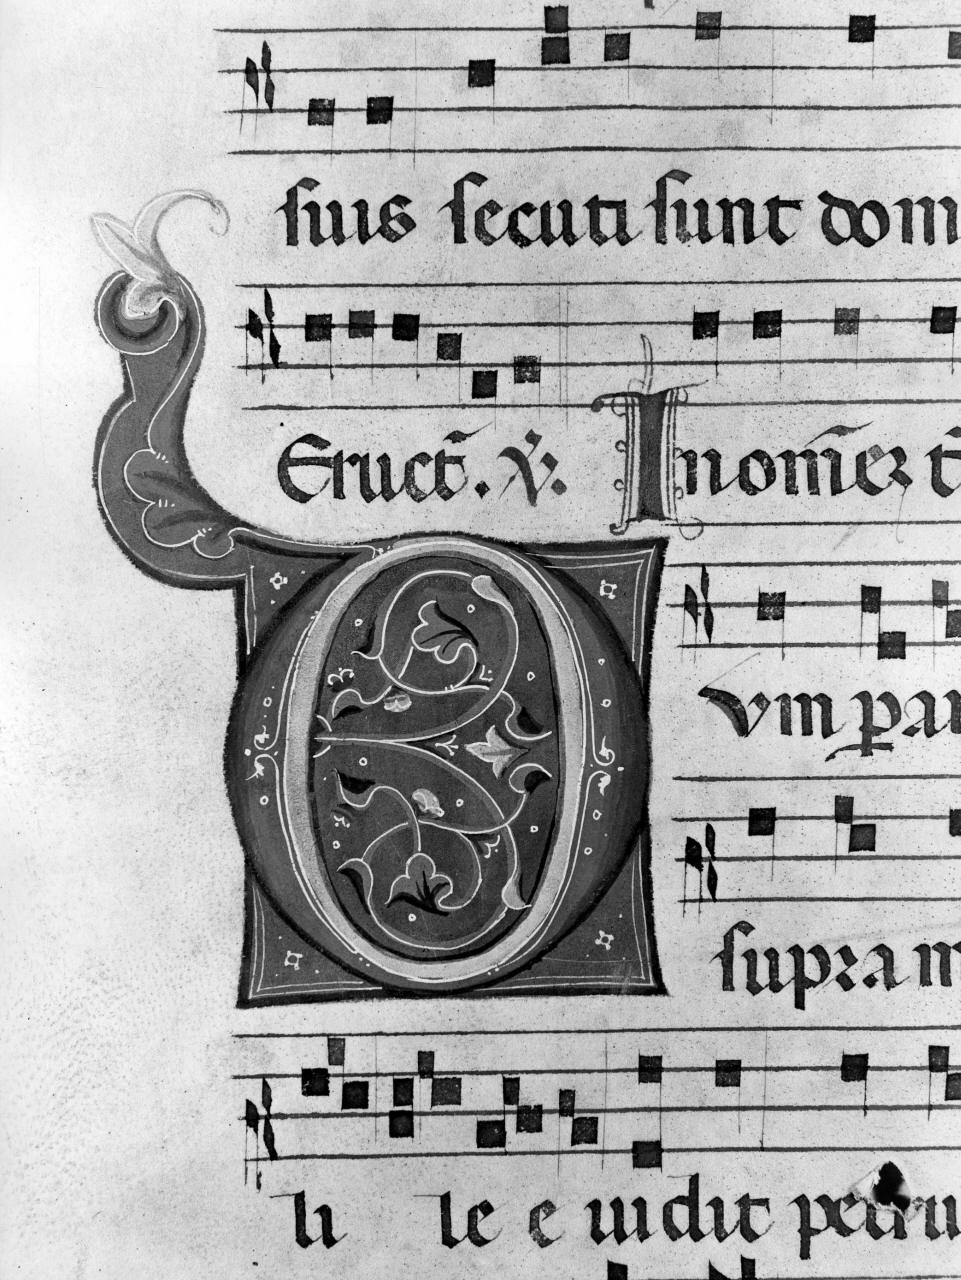 suis secuti sunt dom
Eruct̄. ℣. In om̄eʒ t̄
Dum par
supra m
li le e uidit petru